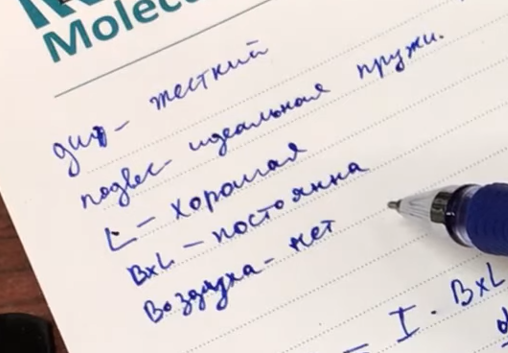 Molec
диф- жесткий
подвес- идеальная пружи.
L - хорошая
BxL - постоянна
Воздуха- нет
= I · BxL